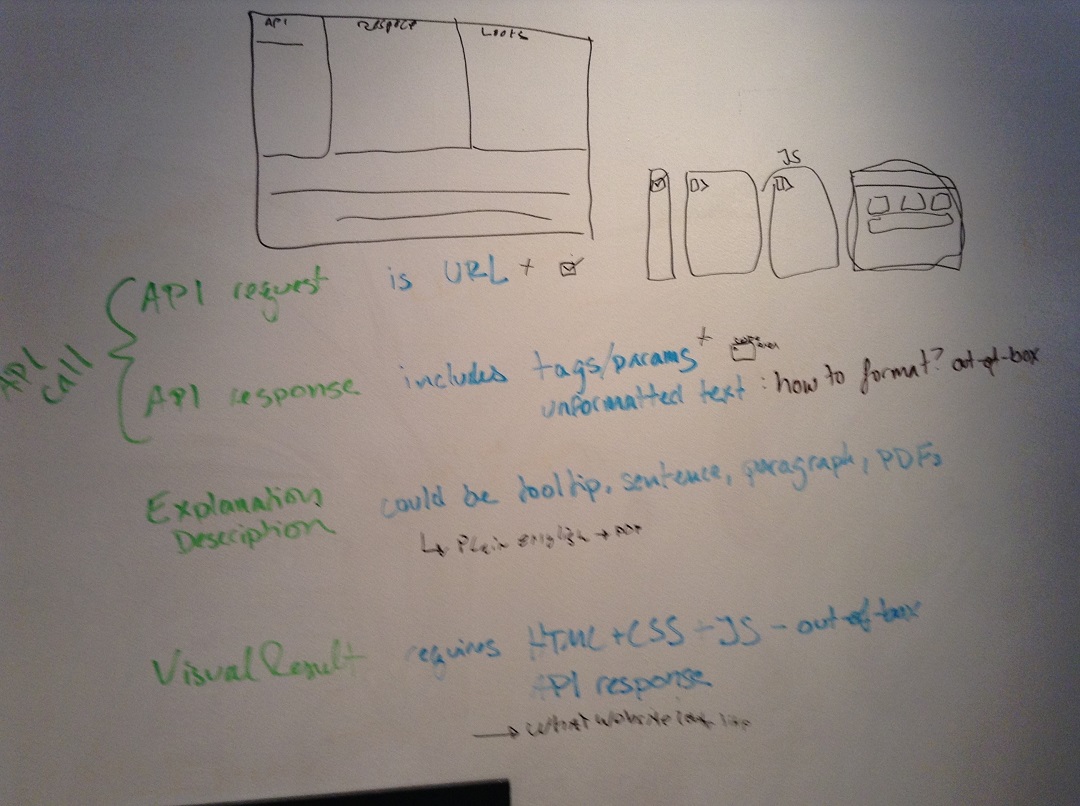 API
Looks
JS
API request is URL +
API call
API response includes tags/params +
unformatted text : how to format? out-of-box
Explanation could be tooltip, sentence, paragraph, PDF,
Description
↳ Plain english →
Visual Result requires HTML + CSS + JS - out-of-box
API response
→ What website look like